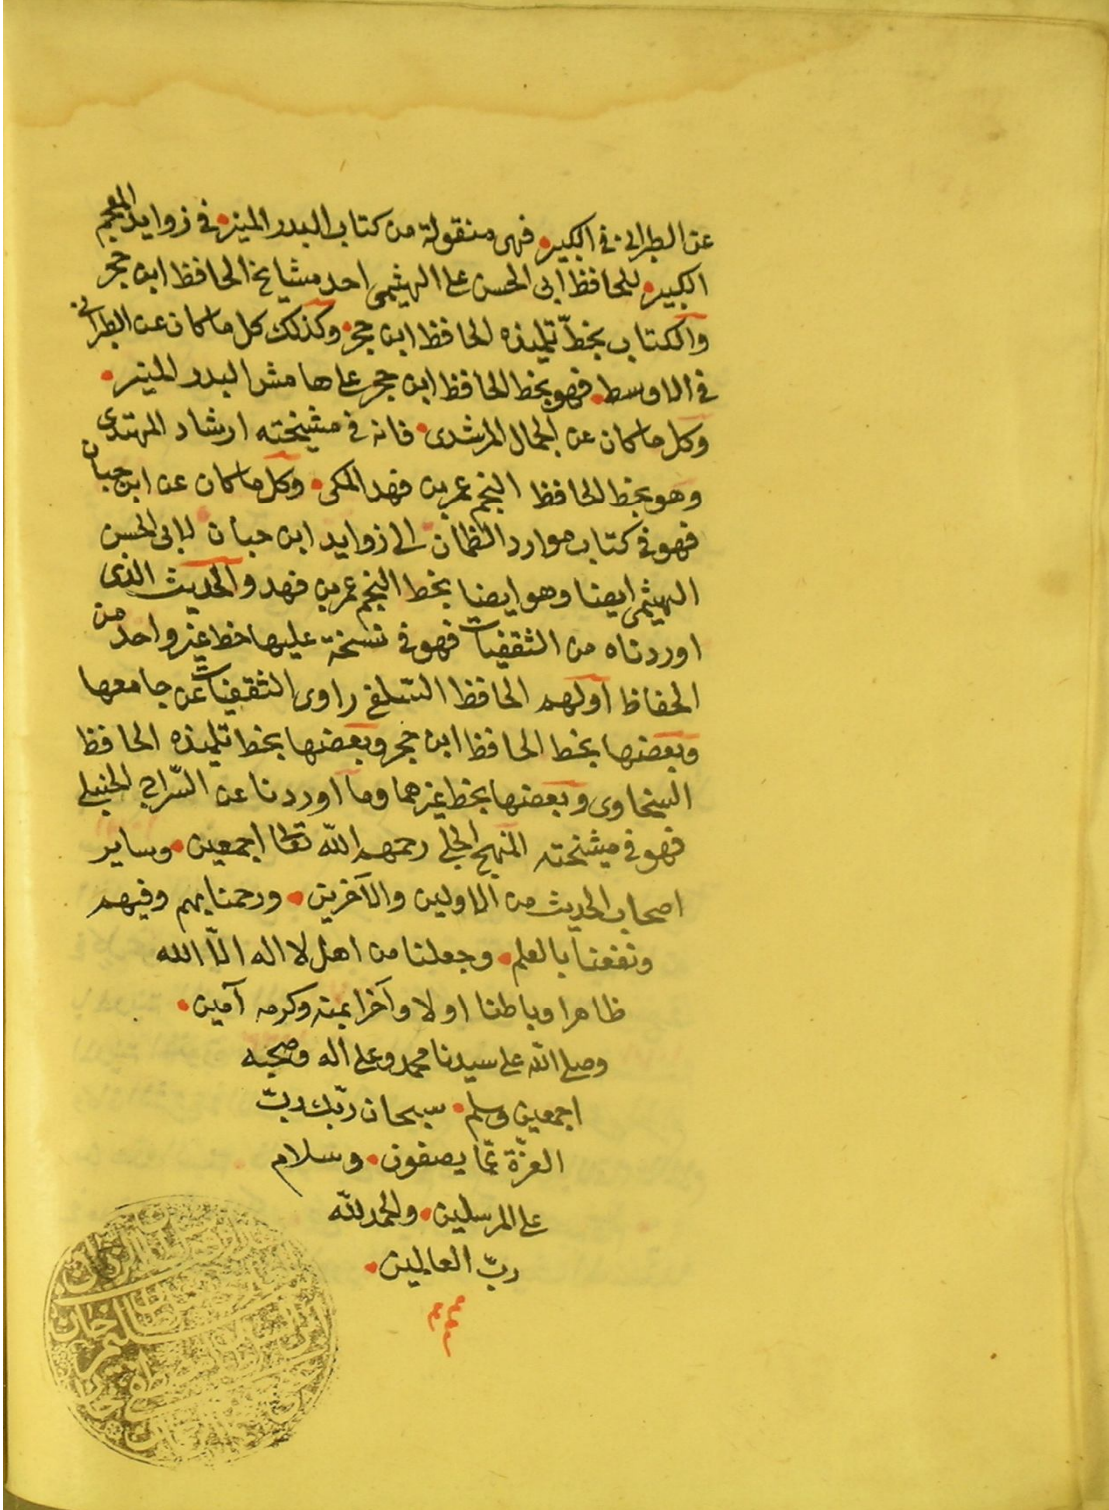 عن الطبراني في الكبير فهي منقولة من كتاب البدر المنير في زوايد المعجم
الكبير للحافظ ابى الحسن على الهيثمى احد مشايخ الحافظ ابن حجر
والكتاب بخطّ تلميذه الحافظ ابن حجر وكذلك كل ما كان عن الطبراني
في الاوسط فهو بخط الحافظ ابن حجر على هامش البدر المنير
وكل ما كان عن الجمال المرشدى فانه في مشيخته ارشاد المهتدى
وهو بخط الحافظ النجم عمر بن فهد المكى وكل ما كان عن ابن حبان
فهو في كتاب موارد الظمان الى زوايد ابن حبان لابى الحسن
الهيثمى ايضا وهو ايضا بخط النجم عمر بن فهد والحديث الذى
اوردناه من الثقفيات فهو في نسخة عليها خط غير واحد من
الحفاظ اولهم الحافظ السّلفي راوى الثقفيات عن جامعها
وبعضها بخط الحافظ ابن حجر وبعضها بخط تلميذه الحافظ
السخاوى وبعضها بخط غيرهما وما اوردنا عن السّراج الحنبلى
فهو في مشيخته المنهج الجلى رحمهم الله تعالى اجمعين وساير
اصحاب الحديث من الاولين والآخرين ورحمنا بهم وفيهم
ونفعنا بالعلم وجعلنا من اهل لا اله الّا الله
ظاهرا وباطنا اولا وآخرا بمنه وكرمه آمين
وصلى الله على سيدنا محمد وعلى اله وصحبه
اجمعين وسلم سبحان ربّك ربّ
العزّة عمّا يصفون وسلام
على المرسلين والحمد للّه
ربّ العالمين